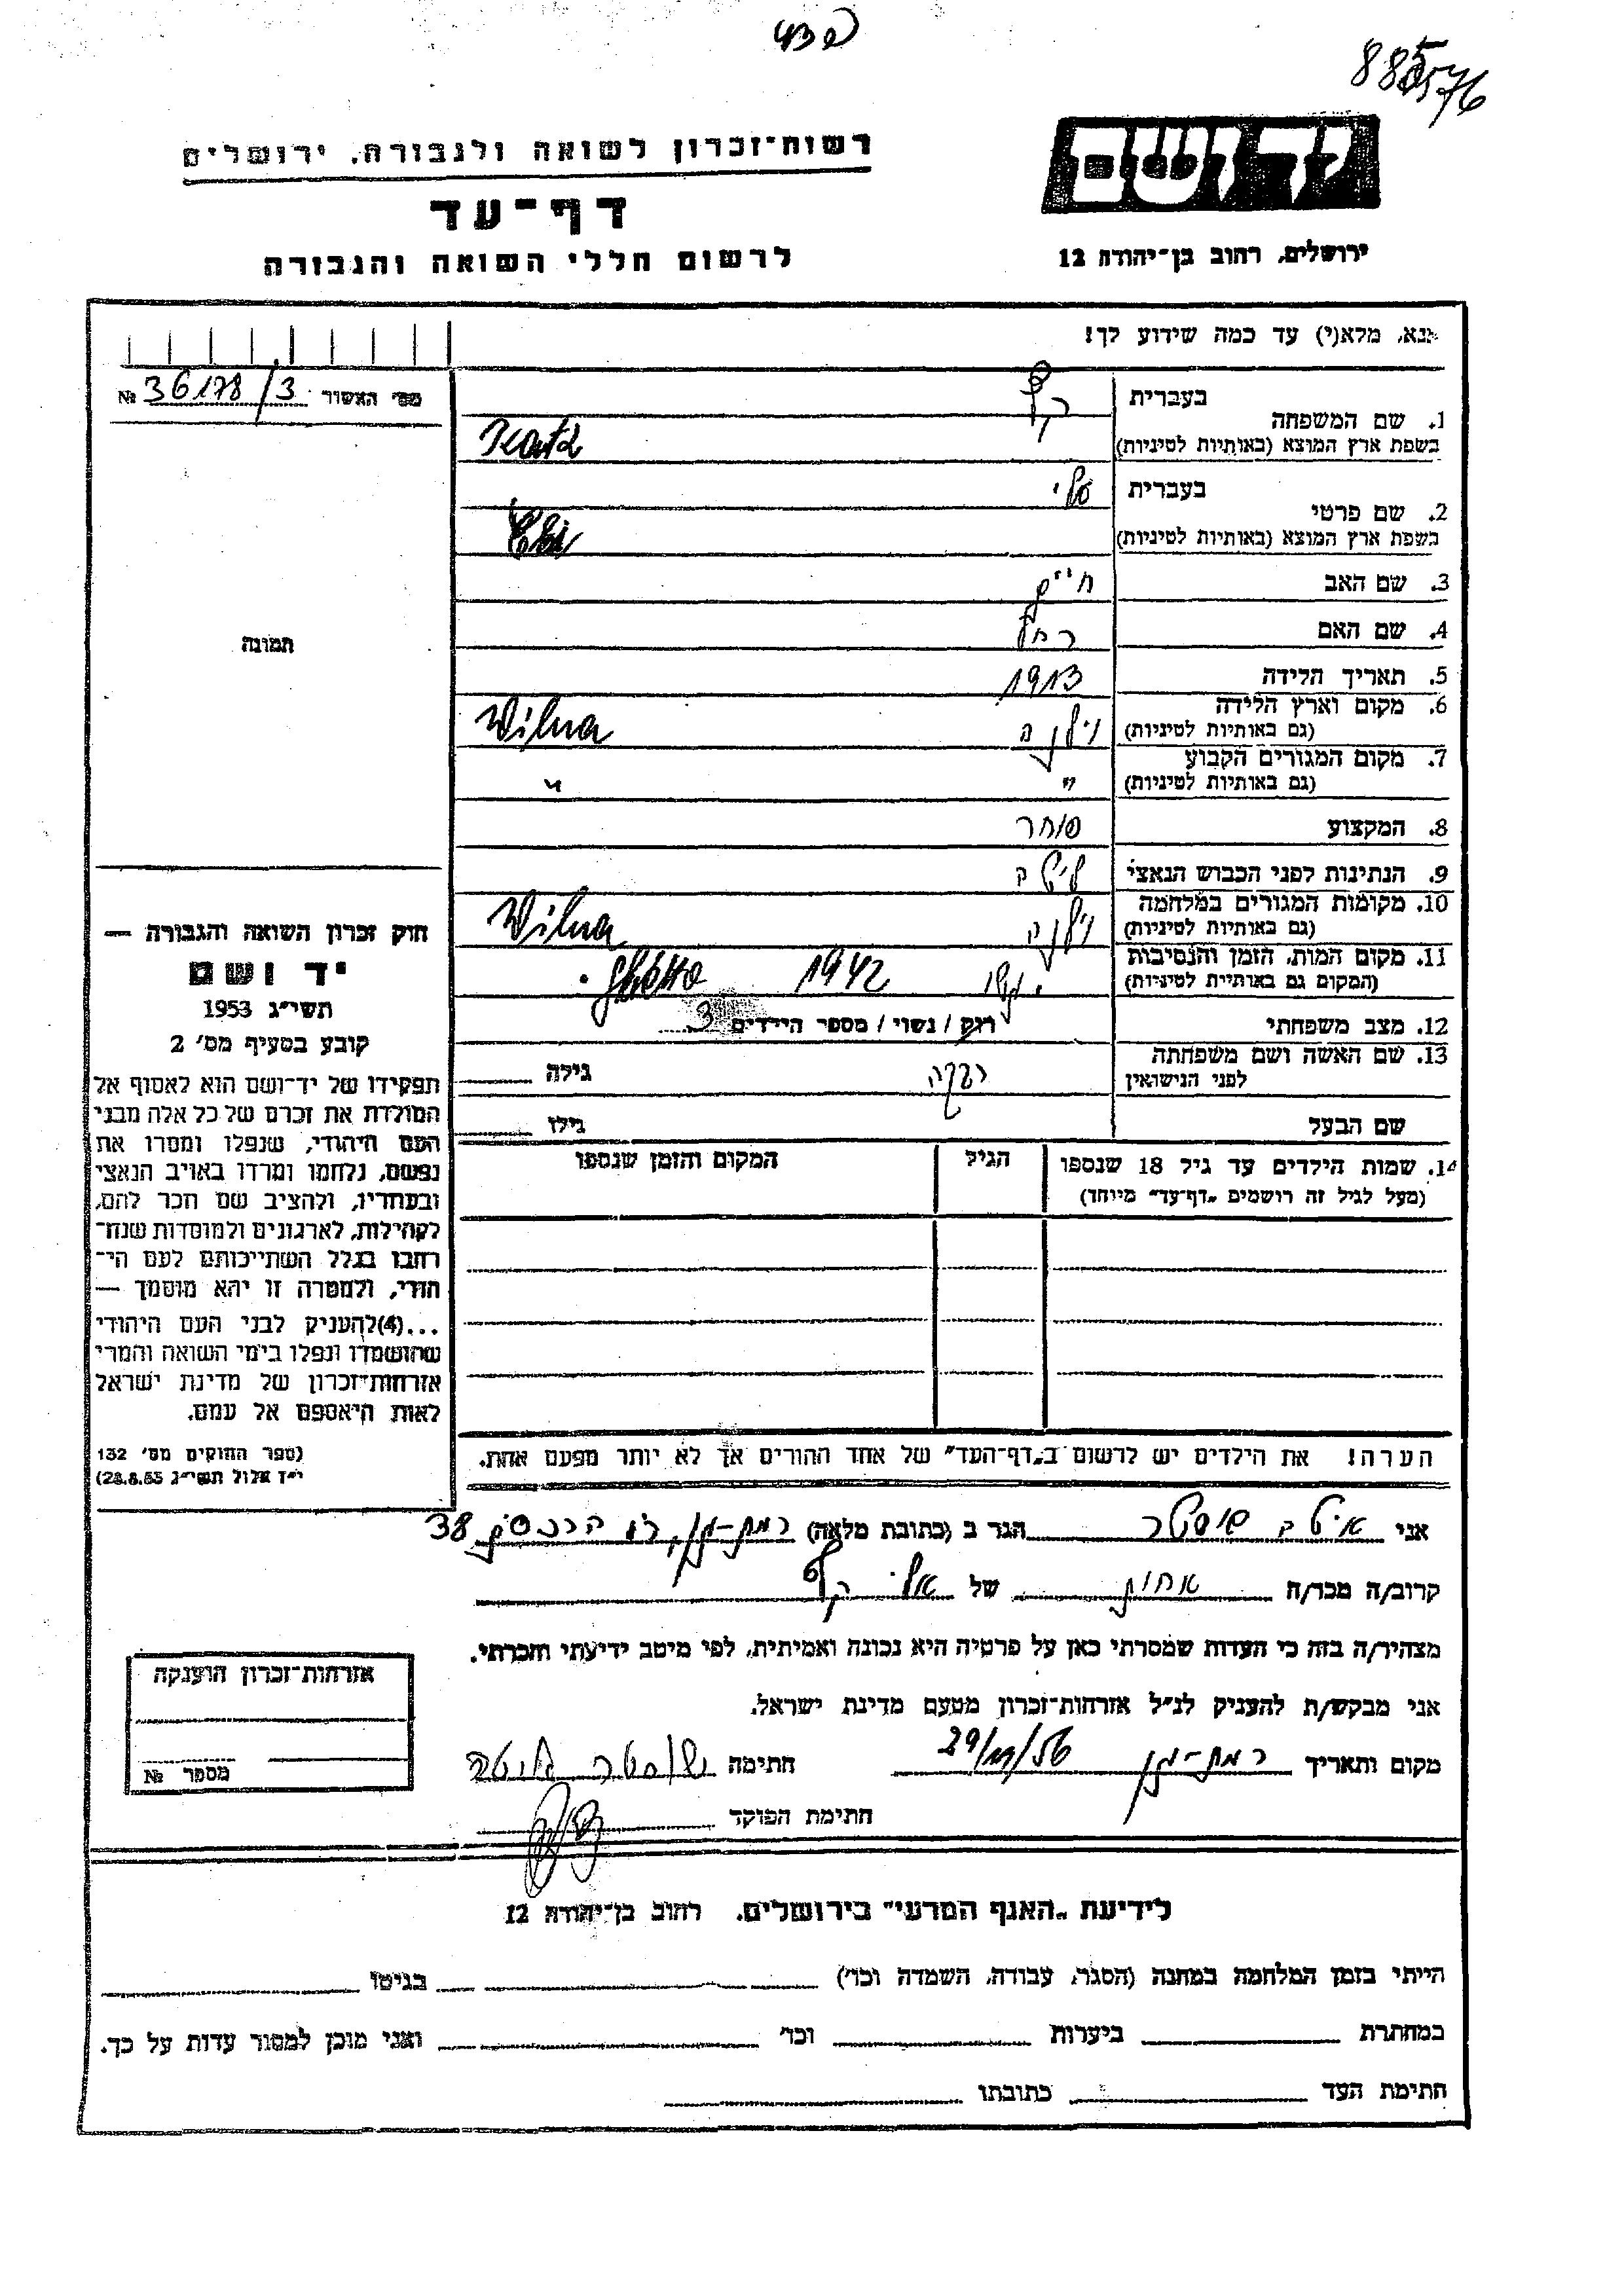 885576
רשות־זכרון לשואה ולגבורה, ירושלים
יד ושם
דף־עד
לרשום חללי השואה והגבורה
ירושלים, רחוב בן־יהודה 12
נא, מלא(י) עד כמה שידוע לך!
מס׳ האשור 36178/3 №
1. שם המשפחה
בעברית כץ
בשפת ארץ המוצא (באותיות לטיניות) Katz
2. שם פרטי
בעברית אלי
בשפת ארץ המוצא (באותיות לטיניות) Eli
3. שם האב חיים
4. שם האם רחל
5. תאריך הלידה 1913
6. מקום וארץ הלידה וילנה Wilna
(גם באותיות לטיניות)
7. מקום המגורים הקבוע " "
(גם באותיות לטיניות)
8. המקצוע סוחר
9. הנתינות לפני הכבוש הנאצי
10. מקומות המגורים במלחמה וילנה Wilna
(גם באותיות לטיניות)
11. מקום המות, הזמן והנסיבות 1942 ghetto
(המקום גם באותיות לטיניות)
12. מצב משפחתי רוק / נשוי / מספר הילדים 3
13. שם האשה ושם משפחתה רבקה גילה
לפני הנישואין
שם הבעל גילו
14. שמות הילדים עד גיל 18 שנספו הגיל המקום והזמן שנספו
(מעל לגיל זה רושמים „דף־עד" מיוחד)
הערה! את הילדים יש לרשום ב„דף־העד" של אחד ההורים אך לא יותר מפעם אחת.
תמונה
חוק זכרון השואה והגבורה —
יד ושם
תשי״ג 1953
קובע בסעיף מס׳ 2
תפקידו של יד־ושם הוא לאסוף אל
המולדת את זכרם של כל אלה מבני
העם היהודי, שנפלו ומסרו את
נפשם, נלחמו ומרדו באויב הנאצי
ובעוזריו, ולהציב שם וזכר להם,
לקהילות, לארגונים ולמוסדות שנח־
רבו בגלל השתייכותם לעם הי־
הודי, ולמטרה זו יהא מוסמך —
...(4)להעניק לבני העם היהודי
שהושמדו ונפלו בימי השואה והמרי
אזרחות־זכרון של מדינת ישראל
לאות היאספם אל עמם.
(ספר החוקים מס׳ 132
י״ז אלול תשי״ג 28.8.53)
אני הגר ב (כתובת מלאה) רמת-גן, 38
קרוב/ה מכר/ה אחות של אלי כץ
מצהיר/ה בזה כי העדות שמסרתי כאן על פרטיה היא נכונה ואמיתית, לפי מיטב ידיעתי והכרתי.
אני מבקש/ת להעניק לנ״ל אזרחות־זכרון מטעם מדינת ישראל.
מקום ותאריך רמת-גן חתימה
חתימת הפוקד
אזרחות־זכרון הוענקה
מספר №
לידיעת „האגף המדעי" בירושלים, רחוב בן־יהודה 12
הייתי בזמן המלחמה במחנה (הסגר, עבודה, השמדה וכו׳) בגיטו
במחתרת ביערות וכו׳ ואני מוכן למסור עדות על כך.
חתימת העד כתובתו